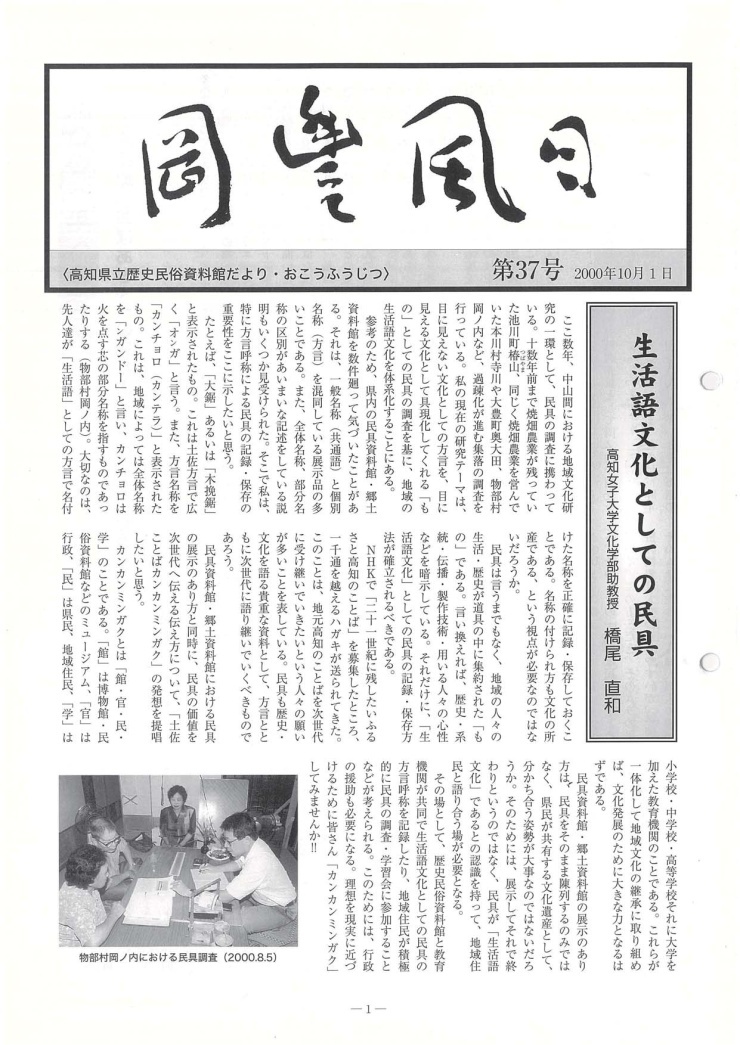 岡豊風日
〈高知県立歴史民俗資料館だより・おこうふうじつ〉
第37号 2000年10月1日
生活語文化としての民具
高知女子大学文化学部助教授 橋尾 直和
ここ数年、中山間における地域文化研
究の一環として、民具の調査に携わって
いる。十数年前まで焼畑農業が残ってい
た池川町椿山、同じく焼畑農業を営んで
いた本川村寺川や大豊町奥大田、物部村
岡ノ内など、過疎化が進む集落の調査を
行っている。私の現在の研究テーマは、
目に見えない文化としての方言を、目に
見える文化として具現化してくれる「も
の」としての民具の調査を基に、地域の
生活語文化を体系化することにある。
参考のため、県内の民具資料館・郷土
資料館を数件廻って気づいたことがあ
る。それは、一般名称（共通語）と個別
名称（方言）を混同している展示品の多
いことである。また、全体名称、部分名
称の区別があいまいな記述をしている説
明もいくつか見受けられた。そこで私は、
特に方言呼称による民具の記録・保存の
重要性をここに示したいと思う。
たとえば、「大鋸」あるいは「木挽鋸」
と表示されたもの。これは土佐方言で広
く「オンガ」と言う。また、方言名称を
「カンチョロ（カンテラ）」と表示された
もの。これは、地域によっては全体名称
を「シガンドー」と言い、カンチョロは
火を点す芯の部分名称を指すものであっ
たりする（物部村岡ノ内）。大切なのは、
先人達が「生活語」としての方言で名付
けた名称を正確に記録・保存しておくこ
とである。名称の付けられ方も文化の所
産である、という視点が必要なのではな
いだろうか。
民具は言うまでもなく、地域の人々の
生活・歴史が道具の中に集約された「も
の」である。言い換えれば、歴史・系
統・伝播・製作技術・用いる人々の心性
などを暗示している。それだけに、「生
活語文化」としての民具の記録・保存方
法が確立されるべきである。
NHKで「二十一世紀に残したいふる
さと高知のことば」を募集したところ、
一千通を越えるハガキが送られてきた。
このことは、地元高知のことばを次世代
に受け継いでいきたいという人々の願い
が多いことを表している。民具も歴史・
文化を語る貴重な資料として、方言とと
もに次世代に語り継いでいくべきもので
あろう。
民具資料館・郷土資料館における民具
の展示のあり方と同時に、民具の価値を
次世代へ伝える伝え方について、「土佐
ことばカンカンミンガク」の発想を提唱
したいと思う。
カンカンミンガクとは「館・官・民・
学」のことである。「館」は博物館・民
俗資料館などのミュージアム、「官」は
行政、「民」は県民、地域住民、「学」は
小学校・中学校・高等学校それに大学を
加えた教育機関のことである。これらが
一体化して地域文化の継承に取り組め
ば、文化発展のために大きな力となるは
ずである。
民具資料館・郷土資料館の展示のあり
方は、民具をそのまま陳列するのみでは
なく、県民が共有する文化遺産として、
分かち合う姿勢が大事なのではないだろ
うか。そのためには、展示してそれで終
わりというのではなく、民具が「生活語
文化」であるとの認識を持って、地域住
民と語り合う場が必要となる。
その場として、歴史民俗資料館と教育
機関が共同で生活語文化としての民具の
方言呼称を記録したり、地域住民が積極
的に民具の調査・学習会に参加すること
などが考えられる。このためには、行政
の援助も必要になる。理想を現実に近づ
けるために皆さん「カンカンミンガク」
してみませんか!!
物部村岡ノ内における民具調査（2000.8.5）
―1―